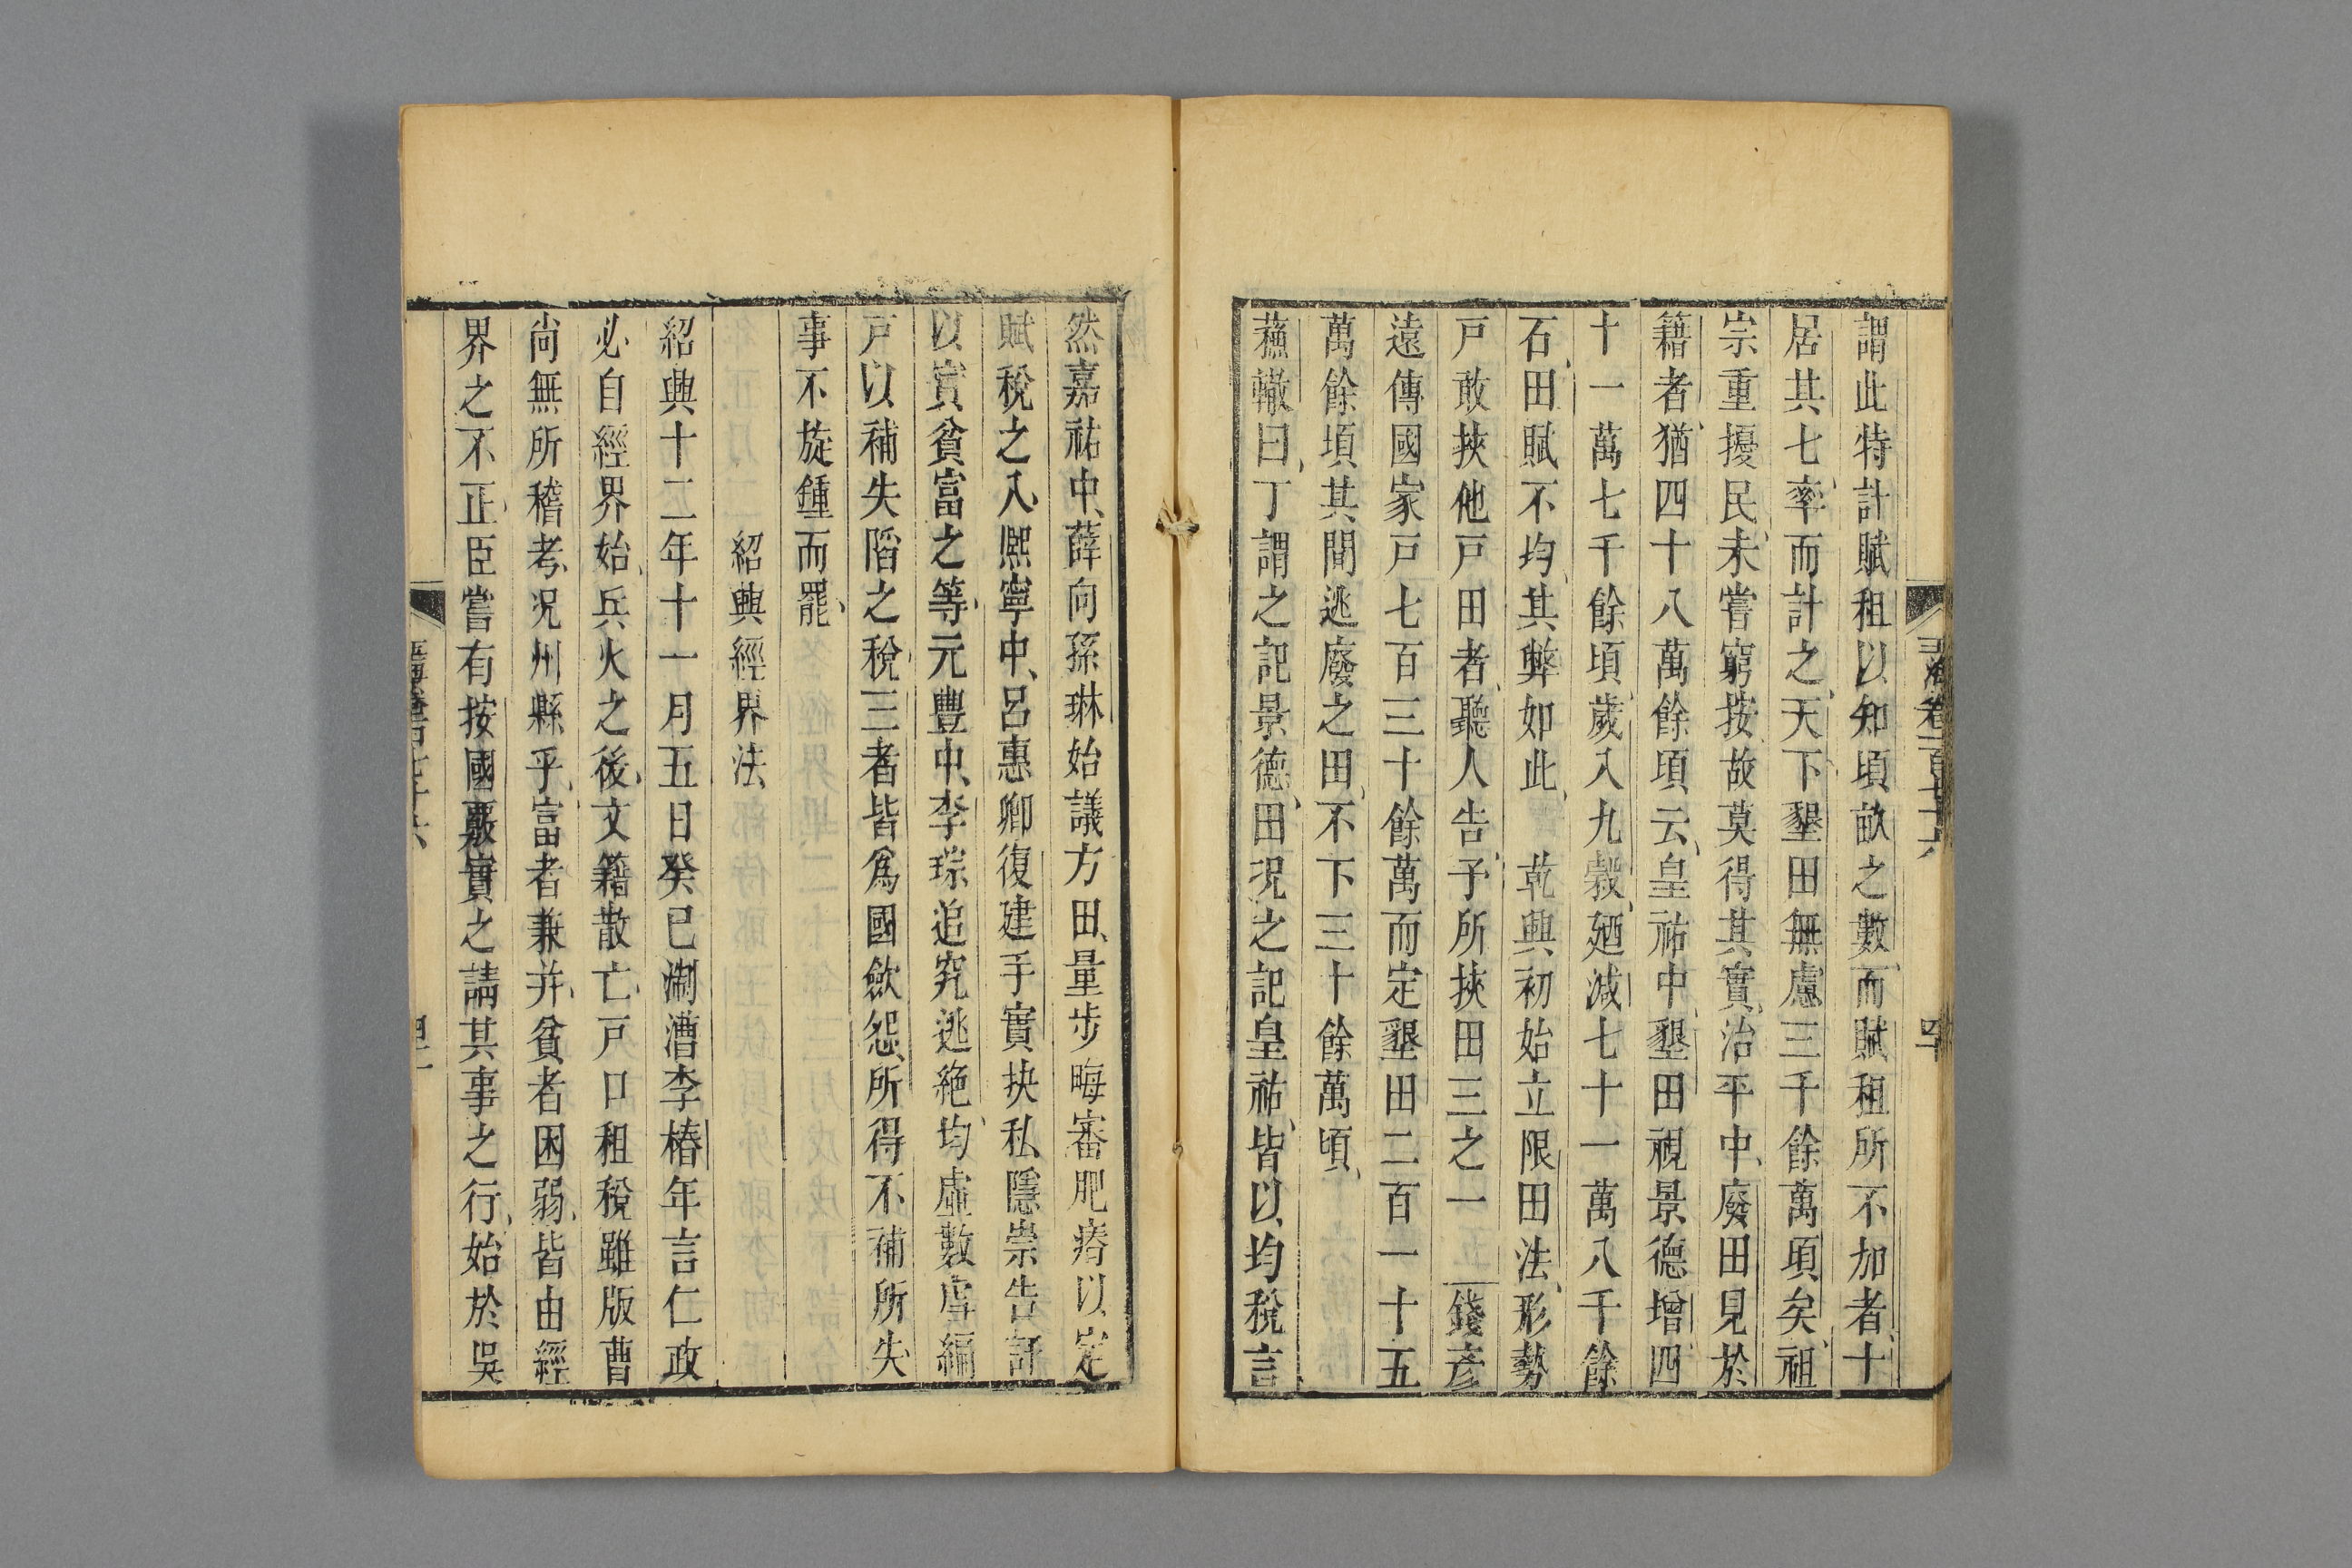 玉海卷一百七十六
四十
謂此特計賦租以知頃畝之數而賦租所不加者十
居其七率而計之天下墾田無慮三千餘萬頃矣祖
宗重擾民未嘗窮按故莫得其實治平中廢田見於
籍者猶四十八萬餘頃云皇祐中墾田視景德增四
十一萬七千餘頃歲入九穀廼減七十一萬八千餘
石田賦不均其弊如此 乾興初始立限田法形勢
戶敢挾他戶田者聽人告予所挾田三之一 錢彥
遠傳國家戶七百三十餘萬而定墾田二百一十五
萬餘頃其間逃廢之田不下三十餘萬頃
蘇轍曰丁謂之記景德田況之記皇祐皆以均稅言
然嘉祐中薛向孫琳始議方田量步畮審肥瘠以定
賦稅之入熙寧中呂惠卿復建手實抉私隱崇告訐
以實貧富之等元豐中李琮追究逃絶均虛數虐編
戶以補失陷之稅三者皆爲國歛怨所得不補所失
事不旋踵而罷
紹興經界法
紹興十二年十一月五日癸巳漕李椿年言仁政
必自經界始兵火之後文籍散亡戶口租稅雖版曹
尚無所稽考况州縣乎富者兼并貧者困弱皆由經
界之不正臣嘗有按國覈實之請其事之行始於吳